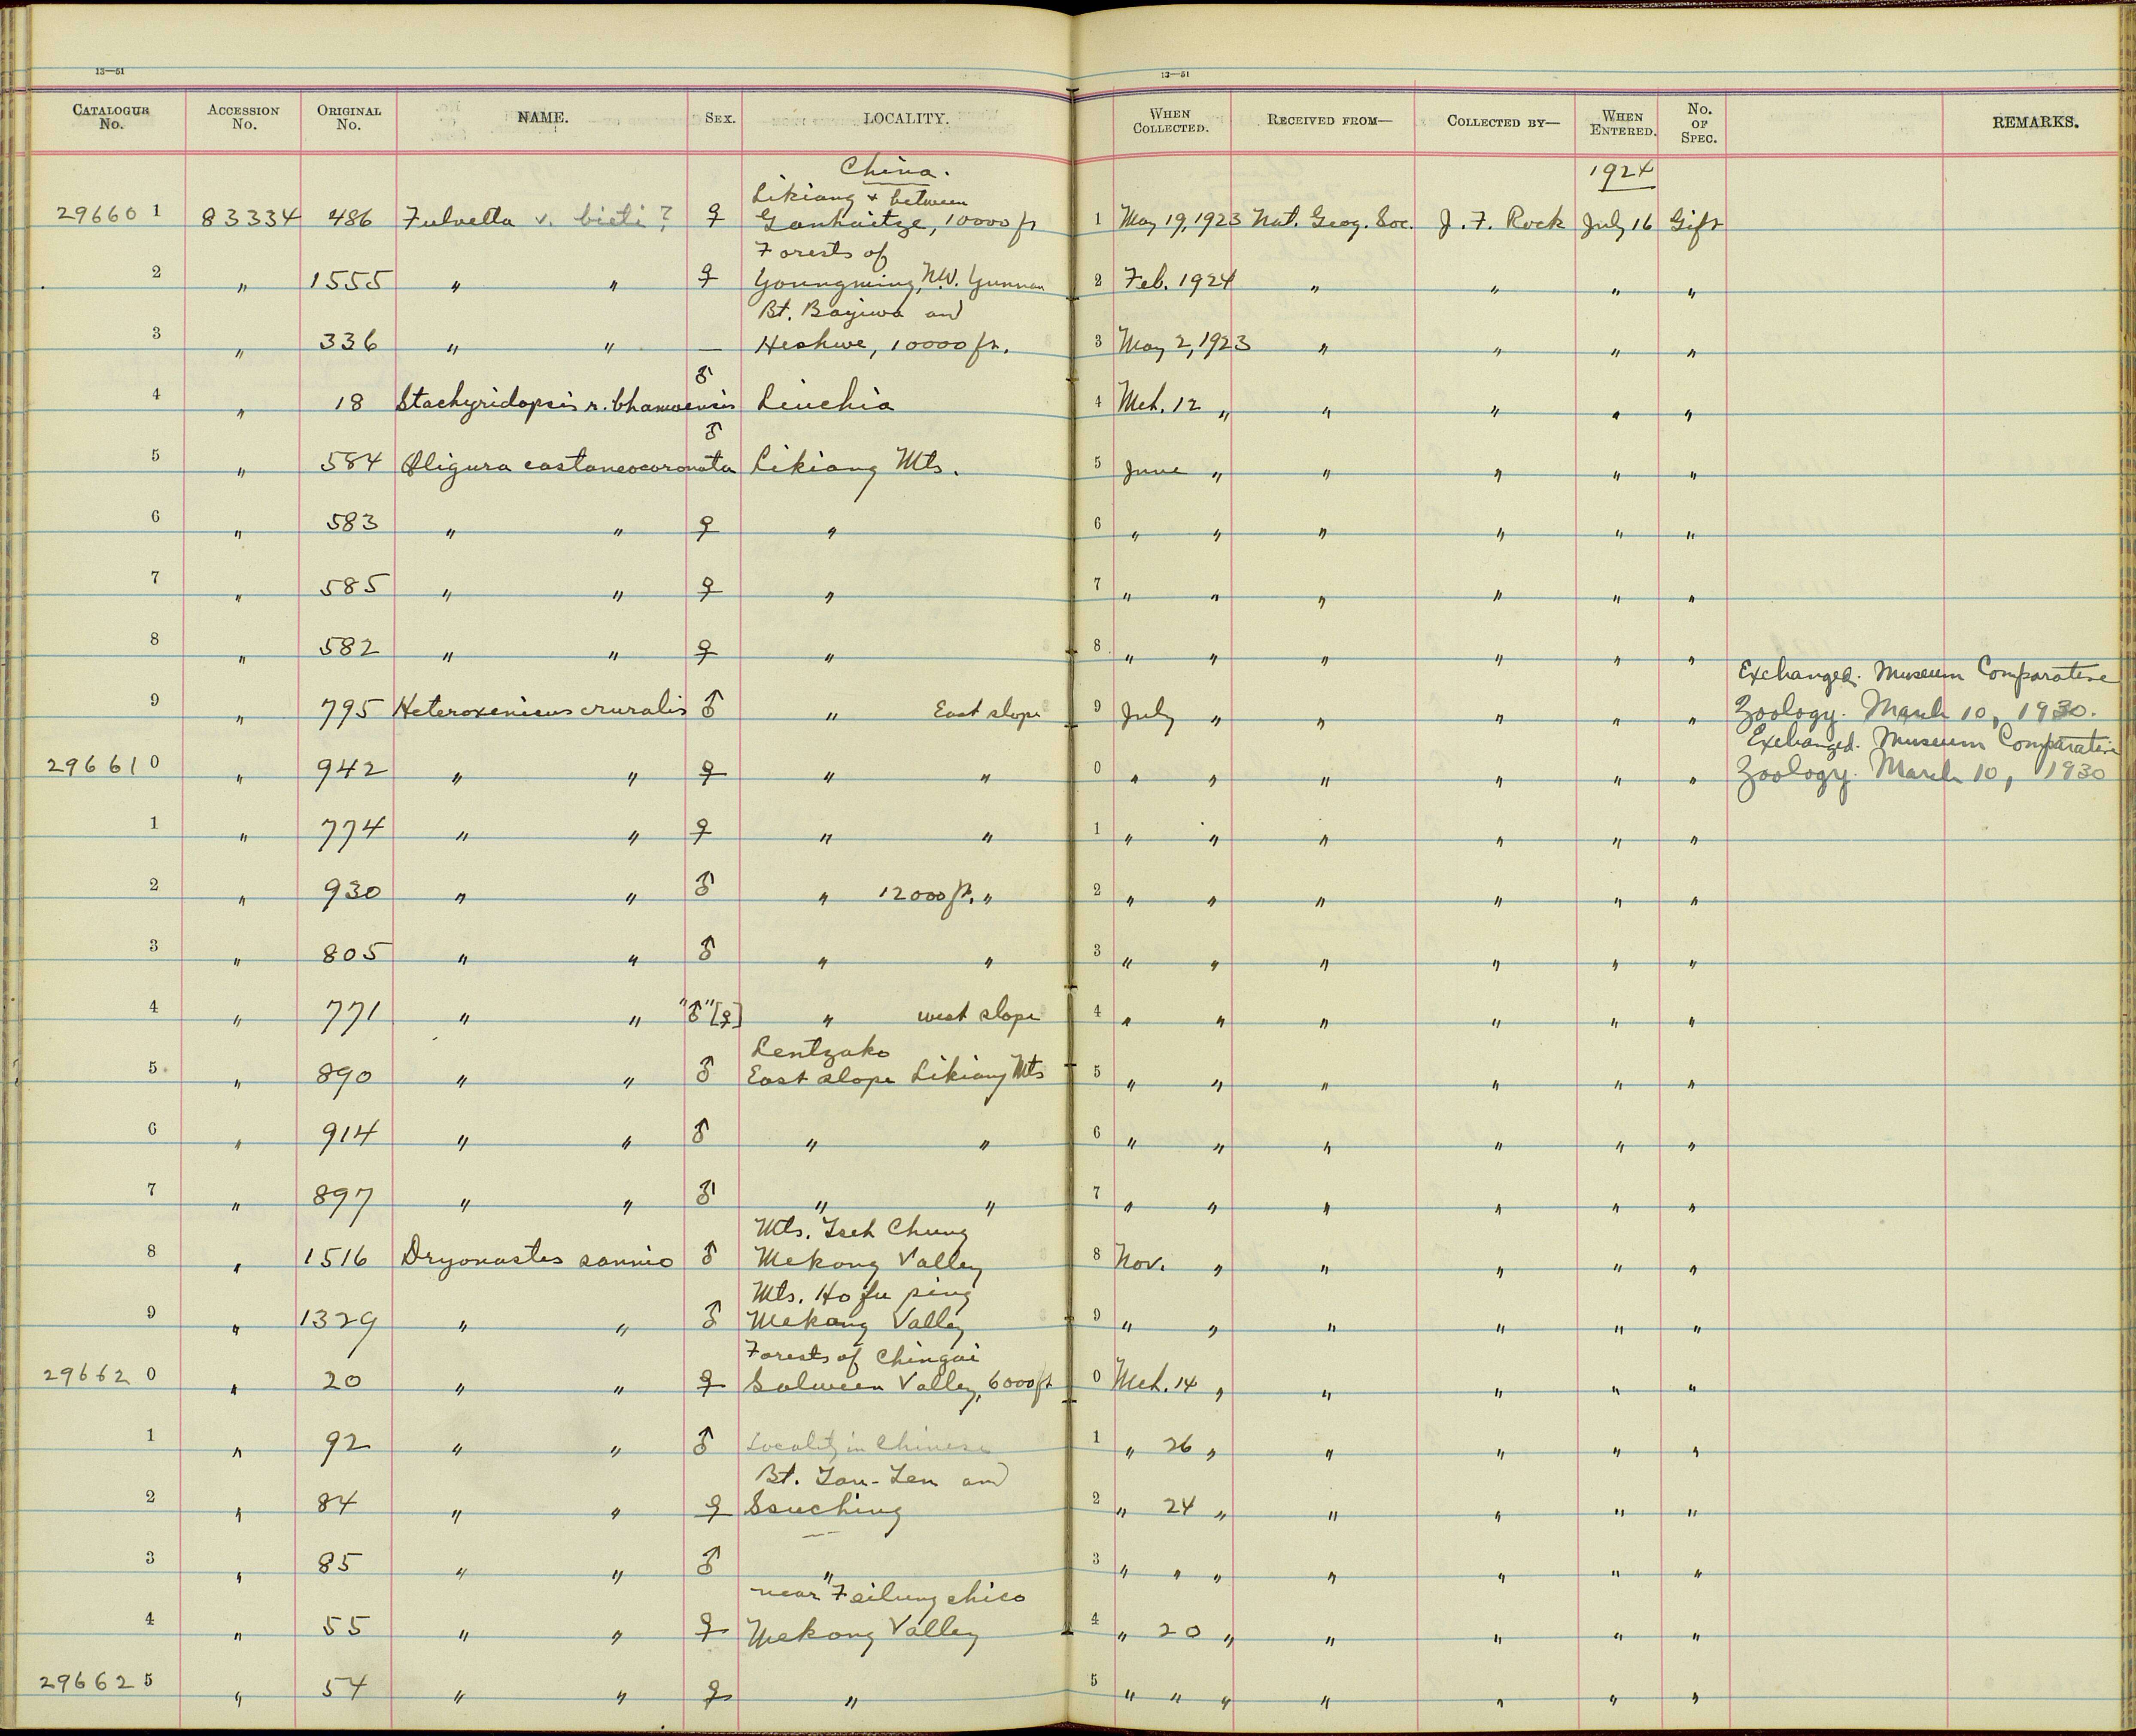 13—51 13—51
CATALOGUE No. ACCESSION No. ORIGINAL No. NAME. SEX. LOCALITY. WHEN COLLECTED. RECEIVED FROM— COLLECTED BY— WHEN ENTERED. No. OF SPEC. REMARKS.
China. 1924
Likiang & between
296601 83334 486 Fulvetta v. bieti? ♀ Ganhaitze, 10000 ft 1 May 19, 1923 Nat. Geog. Soc. J. F. Rock July 16 Gift
Forests of
2 " 1555 " " ♀ Youngning, N.W. Yunnan 2 Feb. 1924 " " " "
Bt. Bayiwa and
3 " 336 " " — Heshwe, 10000 ft. 3 May 2, 1923 " " " "
4 " 18 Stachyridopsis r. bhamoensis ♂ Liuchia 4 Mch. 12 " " " " "
5 " 584 Oligura castaneocoronata ♂ Likiang Mts. 5 June " " " " "
6 " 583 " " ♀ " 6 " " " " " "
7 " 585 " " ♀ " 7 " " " " " "
8 " 582 " " ♀ " 8 " " " " " "
Exchanged. Museum Comparative
9 " 795 Heteroxenicus cruralis ♂ " East slope 9 July " " " " " Zoology. March 10, 1930.
Exchanged. Museum Comparative
296610 " 942 " " ♀ " " 0 " " " " " " Zoology. March 10, 1930
1 " 774 " " ♀ " " 1 " " " " " "
2 " 930 " " ♂ " 12000 ft. " 2 " " " " " "
3 " 805 " " ♂ " " 3 " " " " " "
4 " 771 " " "♂" [♀] " west slope 4 " " " " " "
Lentzako
5 " 890 " " ♂ East slope Likiang Mts 5 " " " " " "
6 " 914 " " ♂ " " 6 " " " " " "
7 " 897 " " ♂ " " 7 " " " " " "
Mts. Tseh Chung
8 " 1516 Dryonastes sannio ♂ Mekong Valley 8 Nov. " " " " "
Mts. Ho fu ping
9 " 1329 " " ♂ Mekong Valley 9 " " " " " "
Forests of Chingai
296620 " 20 " " ♀ Salween Valley, 6000 ft 0 Mch. 14 " " " " "
1 " 92 " " ♂ Locality in Chinese 1 " 26 " " " " "
Bt. Tau-Len and
2 " 84 " " ♀ Ssuching 2 " 24 " " " " "
3 " 85 " " ♂ " 3 " " " " " " "
near Feilung chico
4 " 55 " " ♀ Mekong Valley 4 " 20 " " " " "
296625 " 54 " " ♀ " 5 " " " " " " "